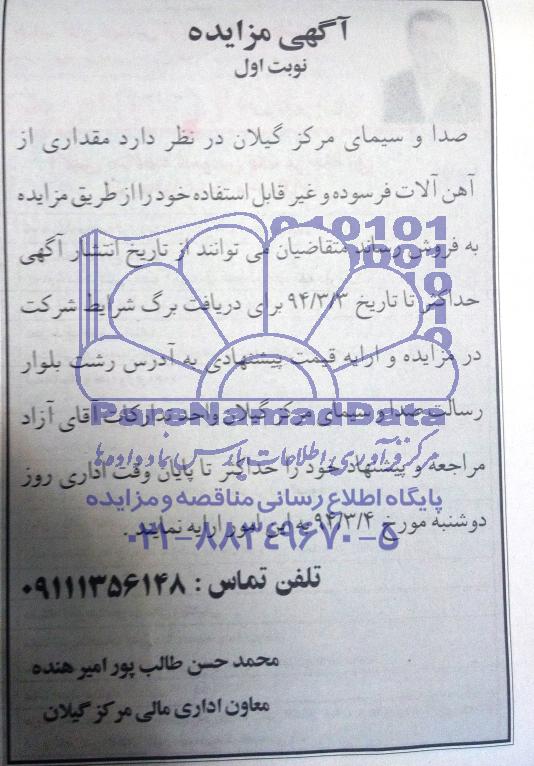 آگهی مزایده
نوبت اول
صدا و سیمای مرکز گیلان در نظر دارد مقداری از
آهن آلات فرسوده و غیر قابل استفاده خود را از طریق مزایده
به فروش رساند متقاضیان می توانند از تاریخ انتشار آگهی
حداکثر تا تاریخ ۹۴/۳/۳ برای دریافت برگ شرایط شرکت
در مزایده و ارایه قیمت پیشنهادی به آدرس رشت بلوار
رسالت صدا و سیمای مرکز گیلان واحد تدارکات آقای آزاد
مراجعه و پیشنهاد خود را حداکثر تا پایان وقت اداری روز
دوشنبه مورخ ۹۴/۳/۴ به این امور ارایه نمایند.
تلفن تماس : ۰۹۱۱۱۳۵۶۱۴۸
محمد حسن طالب پور امیر هنده
معاون اداری مالی مرکز گیلان
ParsNamadData
مرکز فرآوری اطلاعات پارس نماد داده ها
پایگاه اطلاع رسانی مناقصه و مزایده
۰۲۱-۸۸۳۴۹۶۷۰-۵